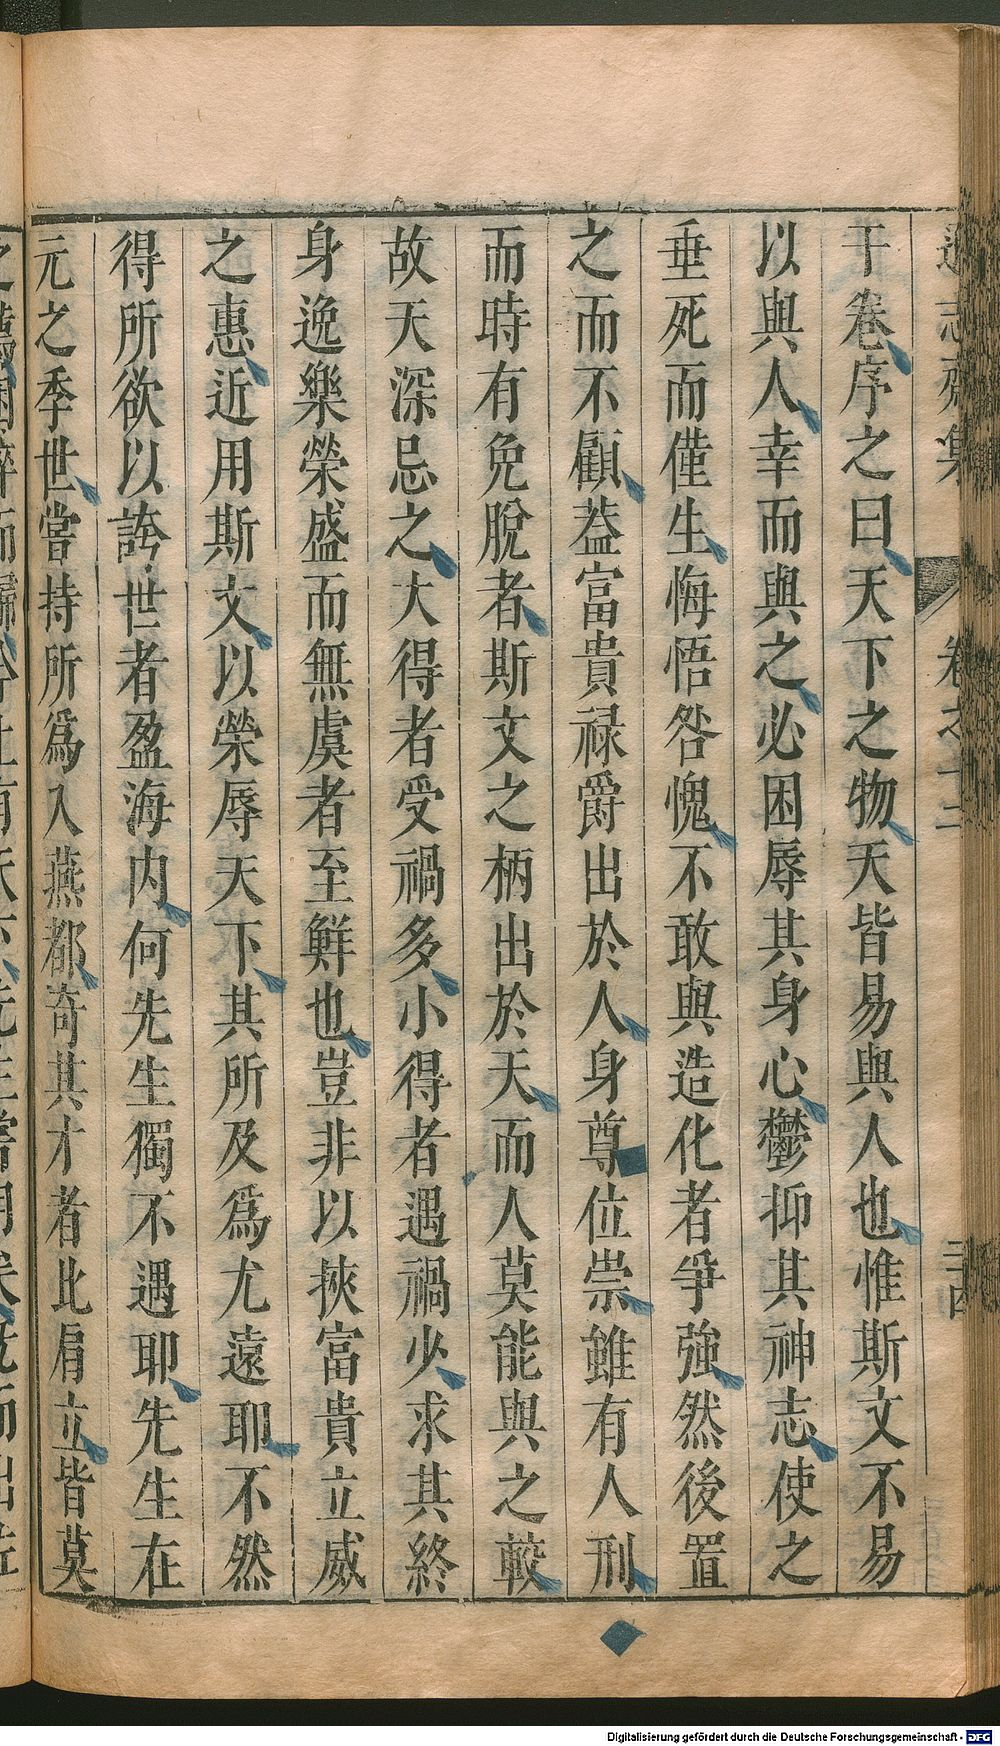 遜志齋集 卷之十二
干卷序之曰天下之物天皆易與人也惟斯文不易
以與人幸而與之必困辱其身心鬱抑其神志使之
垂死而僅生悔悟咎愧不敢與造化者爭強然後置
之而不顧葢富貴祿爵出於人身尊位崇雖有人刑
而時有免脫者斯文之柄出於天而人莫能與之較
故天深忌之大得者受禍多小得者遇禍少求其終
身逸樂榮盛而無虞者至鮮也豈非以挾富貴立威
之惠近用斯文以榮辱天下其所及爲尤遠耶不然
得所欲以誇世者盈海内何先生獨不遇耶先生在
元之季世嘗持所爲入燕都奇其才者比肩立皆莫
Digitalisierung gefördert durch die Deutsche Forschungsgemeinschaft - DFG